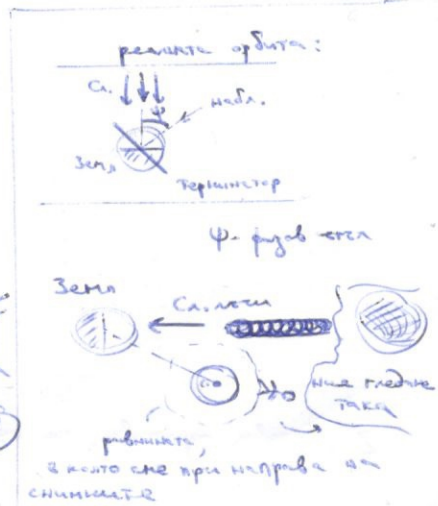 реалната орбита:
Сл.
ψ
набл.
Земя
терминатор
ψ - фазов ъгъл
Земя
Сл. лъчи
ние гледаме
така
равнината,
в която сме при направа на
снимките